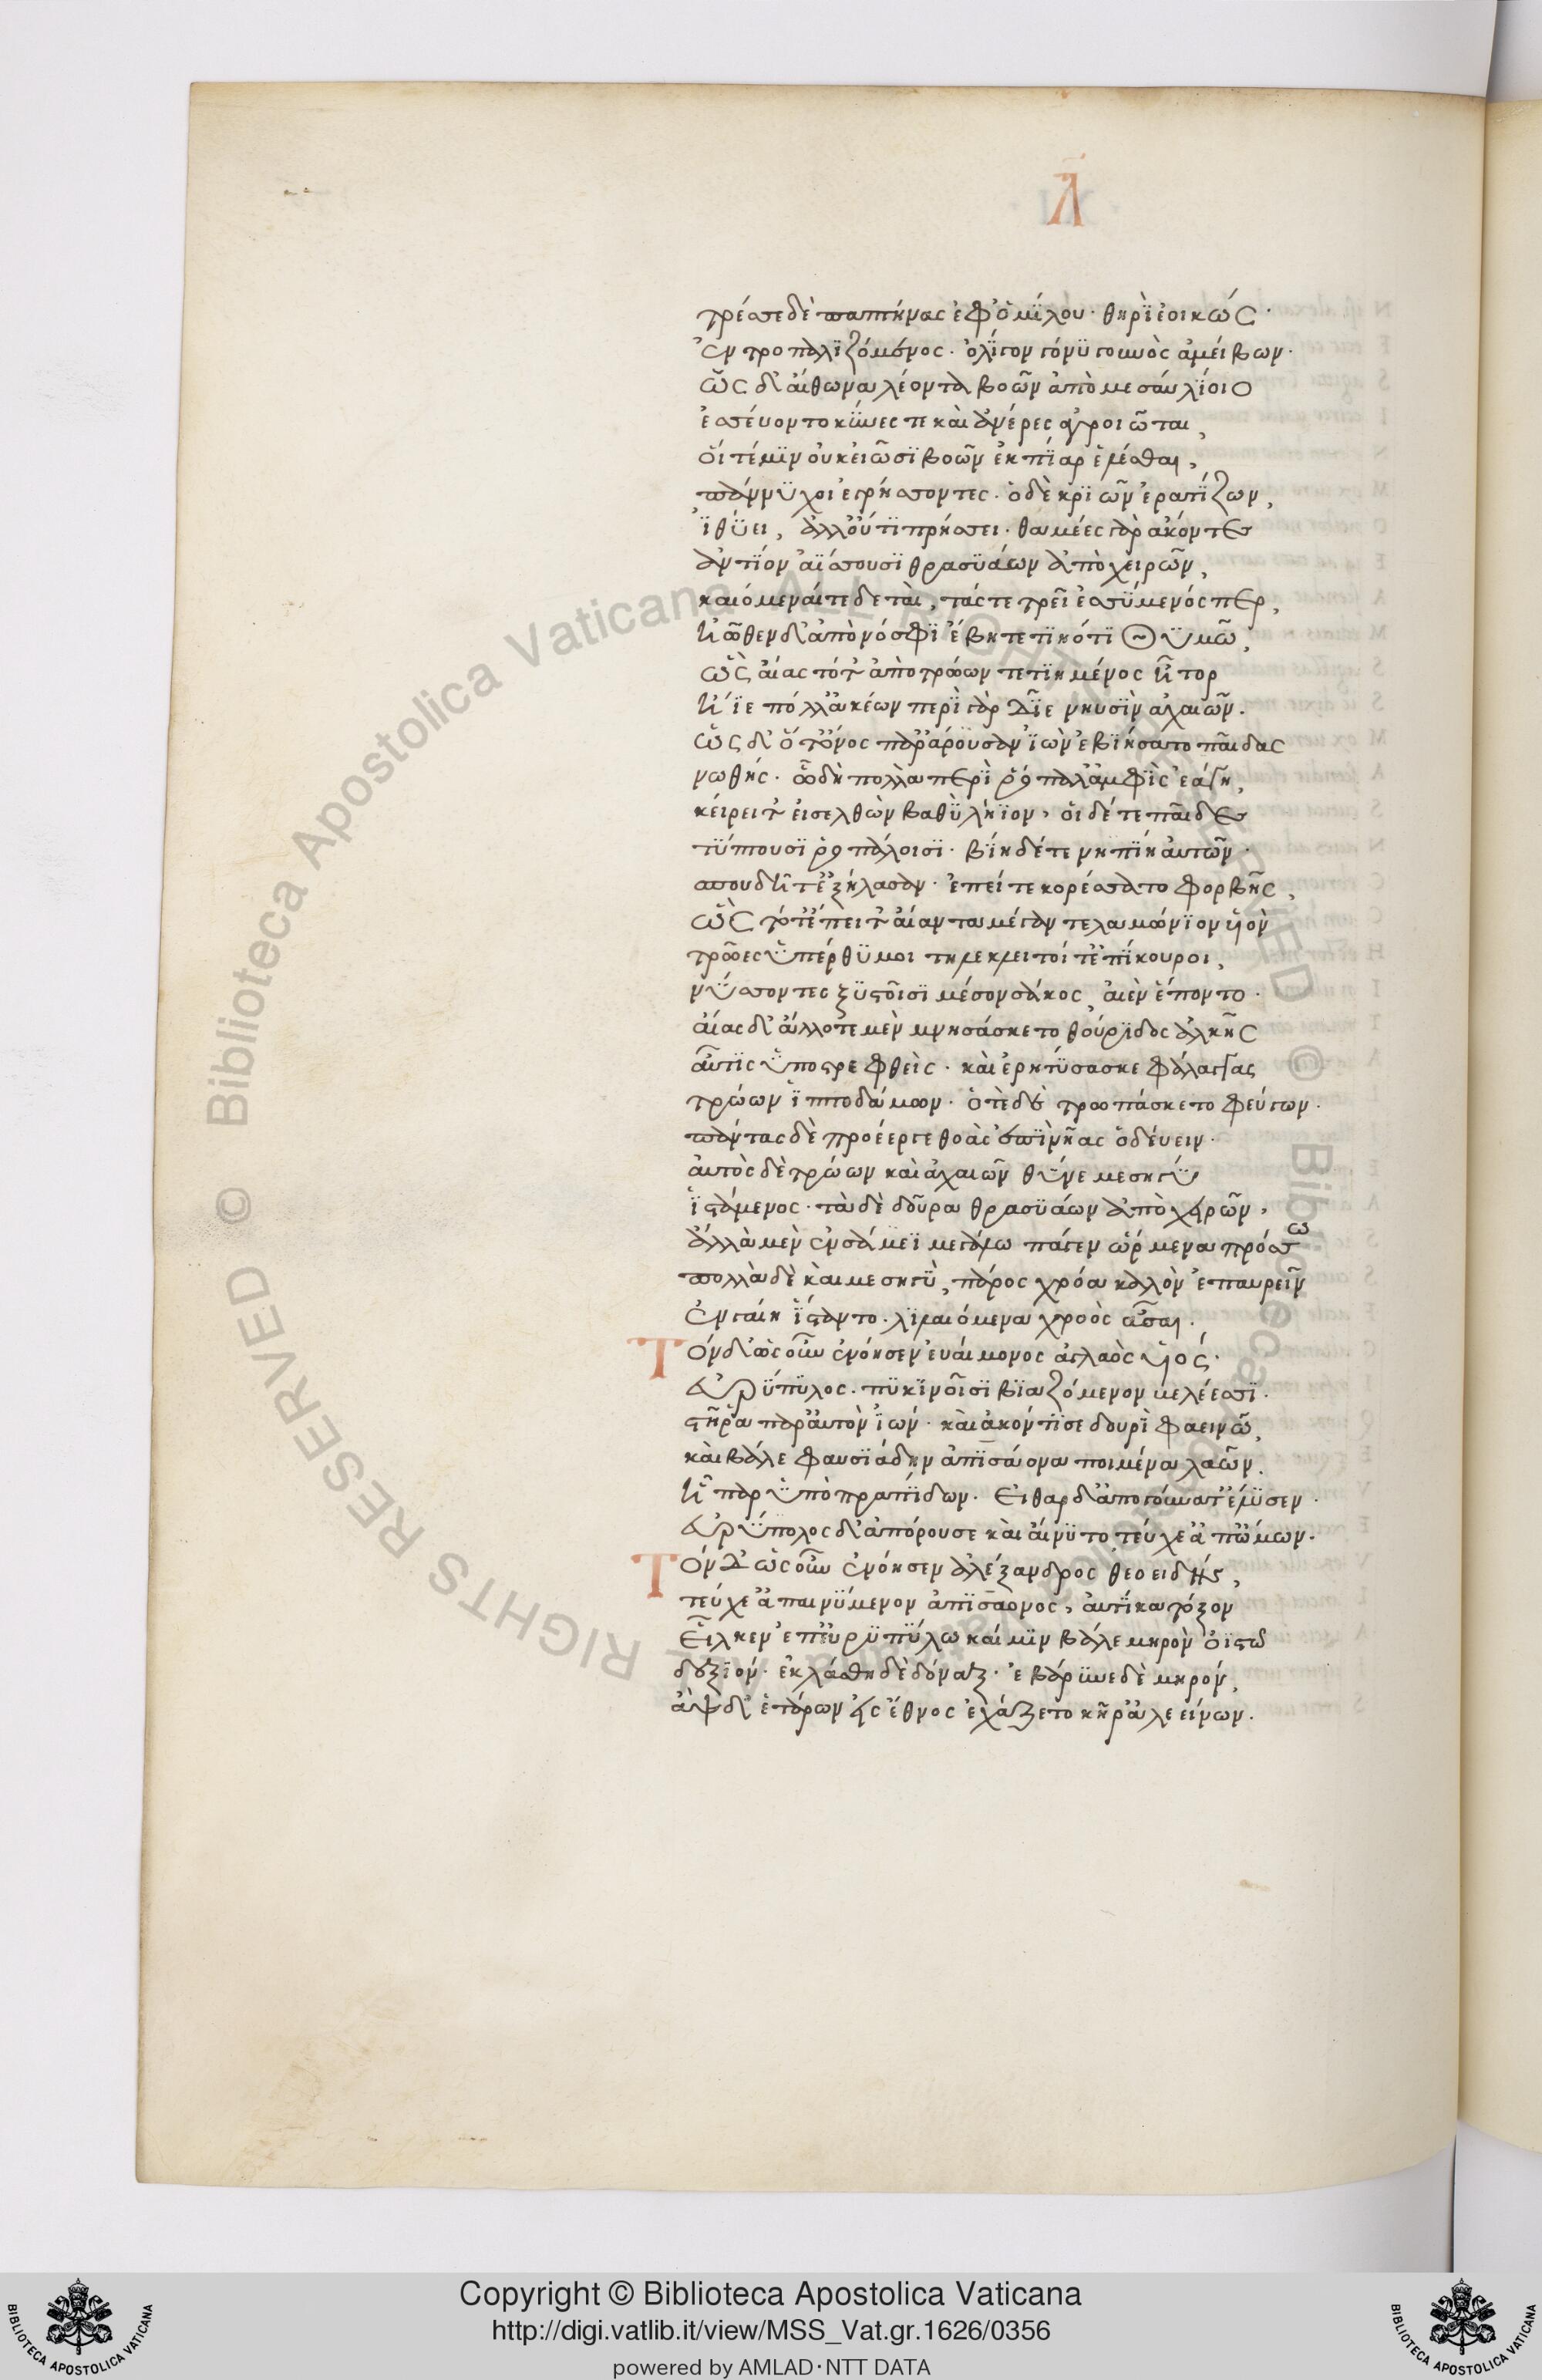 Λ
τρέσσε δὲ παπτήνας ἐφ' ὁμίλου· θηρὶ ἐοικώς·
ἐντροπαλιζόμενος· ὀλίγον γόνυ γουνὸς ἀμείβων·
ὡς δ' αἴθωνα λέοντα βοῶν ἀπὸ μεσαύλιοιο
ἐσσεύοντο κύνες τε καὶ ἀνέρες ἀγροιῶται,
οἵ τέ μιν οὐκ εἰῶσι βοῶν ἐκ πῖαρ ἑλέσθαι,
πάννυχοι ἐγρήσσοντες· ὁ δὲ κρειῶν ἐρατίζων,
ἰθύει, ἀλλ' οὔτι πρήσσει· θαμέες γὰρ ἄκοντες
ἀντίον ἀΐσσουσι θρασυάων ἀπὸ χειρῶν,
καιόμεναί τε δεταὶ, τάς τε τρεῖ ἐσσύμενός περ,
ἠῶθεν δ' ἀπὸ νόσφι ἔβη τετιηότι θυμῶ,
ὣς αἴας τότ' ἀπὸ τρώων τετιημένος ἦτορ
ἤϊε πόλλ' ἀέκων περὶ γὰρ δίε νηυσὶν ἀχαιῶν.
ὡς δ' ὅτ' ὄνος παρ' ἄρουραν ἰὼν ἐβιήσατο παῖδας
νωθής· ᾧ δὴ πολλὰ περὶ ῥόπαλ' ἀμφὶς ἐάγη,
κείρει τ' εἰσελθὼν βαθὺ λήϊον, οἱ δέ τε παῖδες
τύπτουσι ῥοπάλοισι· βίη δέ τε νηπίη αὐτῶν·
σπουδῆ τ' ἐξήλασαν· ἐπεί τε κορέσσατο φορβῆς,
ὣς τότ' ἔπειτ' αἴαντα μέγαν τελαμώνιον υἱὸν
τρῶες ὑπέρθυμοι τηλεκλειτοί τ' ἐπίκουροι,
νύσσοντες ξυστοῖσι μέσον σάκος, αἰὲν ἕποντο·
αἴας δ' ἄλλοτε μὲν μνησάσκετο θούριδος ἀλκῆς
αὖτις ὑποστρεφθεὶς· καὶ ἐρητύσασκε φάλαγγας
τρώων ἱπποδάμων· ὁτὲ δὲ τρωπάσκετο φεύγων·
πάντας δὲ προέεργε θοὰς ἐπὶ νῆας ὁδεύειν·
αὐτὸς δὲ τρώων καὶ ἀχαιῶν θῦνε μεσηγὺ
ἱστάμενος· τὰ δὲ δοῦρα θρασυάων ἀπὸ χειρῶν,
ἄλλα μὲν ἐν σάκεϊ μεγάλω πάγεν ὄρμενα πρόσσω
πολλὰ δὲ καὶ μεσηγὺ, πάρος χρόα καλὸν ἐπαυρεῖν
ἐν γαίη ἵσταντο· λιλαιόμενα χροὸς ἆσαι·
Τὸν δ' ὡς οὖν ἐνόησεν εὐαίμονος ἀγλαὸς υἱός·
εὐρύπυλος· πυκινοῖσι βιαζόμενον βελέεσσι·
στῆ ῥα παρ' αὐτὸν ἰών· καὶ ἀκόντισε δουρὶ φαεινῶ,
καὶ βάλε φαυσιάδην ἀπισάονα ποιμένα λαῶν,
ἧπαρ ὑπὸ πραπίδων· εἶθαρ δ' ἀπὸ γούνατ' ἔλυσεν·
εὐρύπολος δ' ἀπόρουσε καὶ αἴνυτο τεύχε' ἀπ' ὤμων·
Τὸν δ' ὡς οὖν ἐνόησεν ἀλέξανδρος θεοειδής,
τεύχε' ἀπαινύμενον ἀπισάονος, αὐτίκα τόξον
εἷλκεν ἐπ' εὐρυπύλω καί μιν βάλε μηρὸν ὀϊστῶ
δεξιόν· ἐκλάσθη δὲ δόναξ· ἐβάρυνε δὲ μηρόν,
ἂψ δ' ἑτάρων εἰς ἔθνος ἐχάζετο κῆρ' ἀλεείνων.
© Biblioteca Apostolica Vaticana ALL RIGHTS RESERVED © Biblioteca Apostolica Vaticana ALL RIGHTS RESERVED
Copyright © Biblioteca Apostolica Vaticana
http://digi.vatlib.it/view/MSS_Vat.gr.1626/0356
powered by AMLAD·NTT DATA
BIBLIOTECA APOSTOLICA VATICANA
BIBLIOTECA APOSTOLICA VATICANA